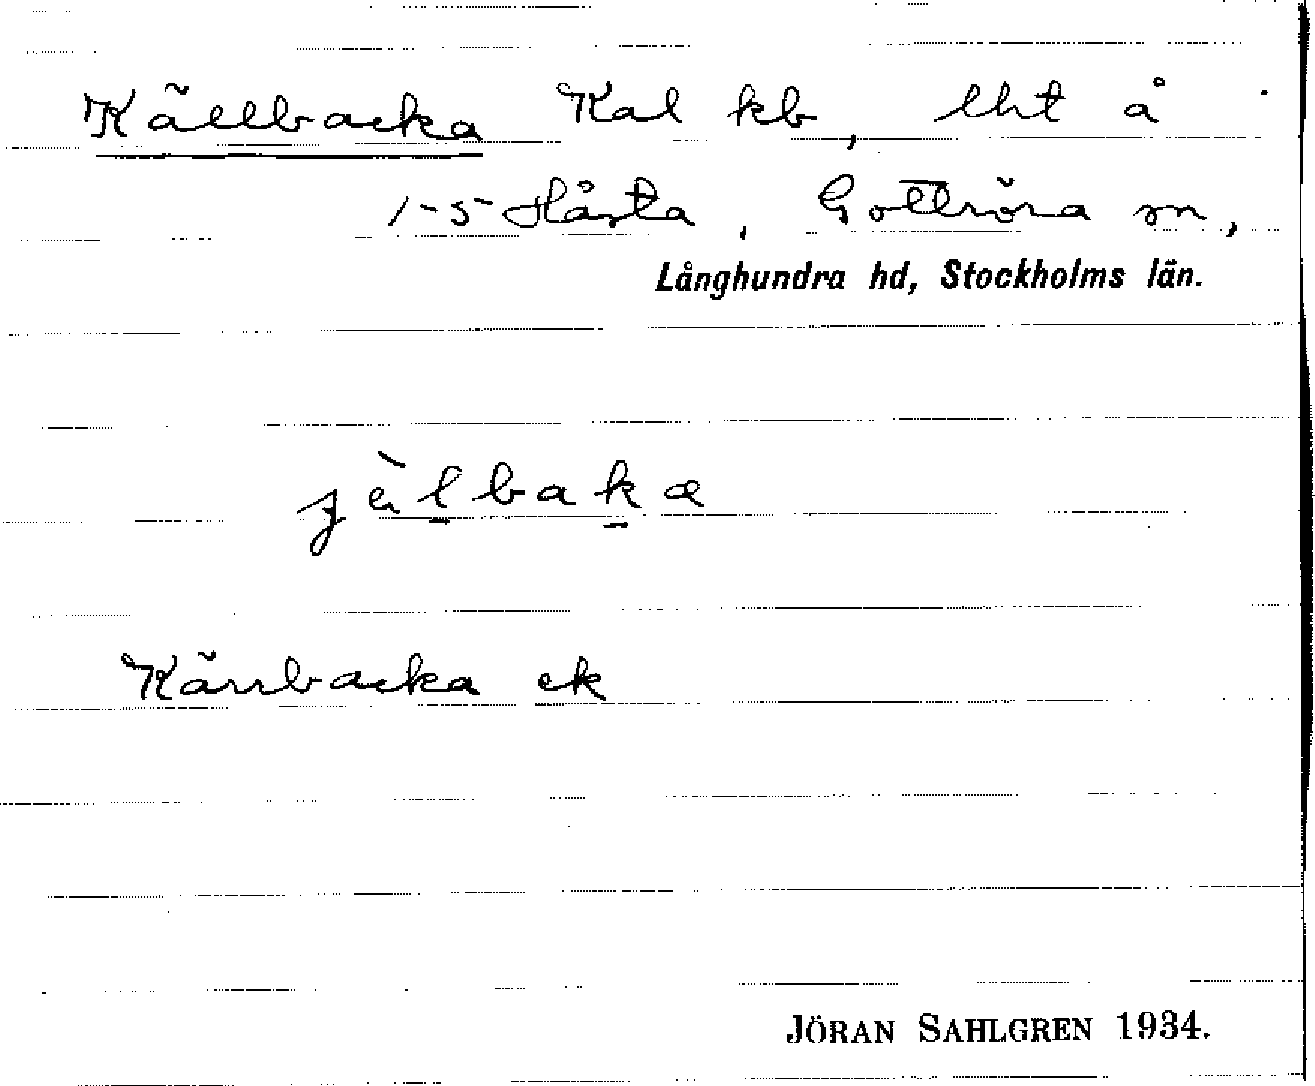 Källbacka Kal kb, lht å
1-5 Håsta, Gottröra sn,
Långhundra hd, Stockholms län.
jälbaka
Kärrbacka ek
JÖRAN SAHLGREN 1934.